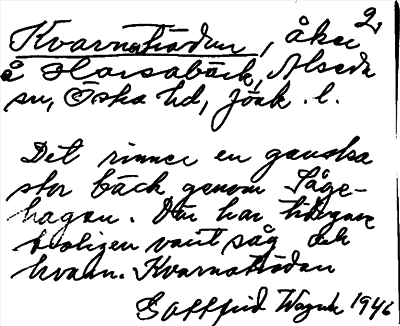 2.
Kvarnahädan, åker
å Horsabäck, Alseda
sn, Östra hd, Jönk. l.
Det rinner en ganska
stor bäck genom Såge-
hagan. Där har tidigare
troligen varit såg och
kvarn. Kvarnahädan
Gottfrid Wagnh 1946